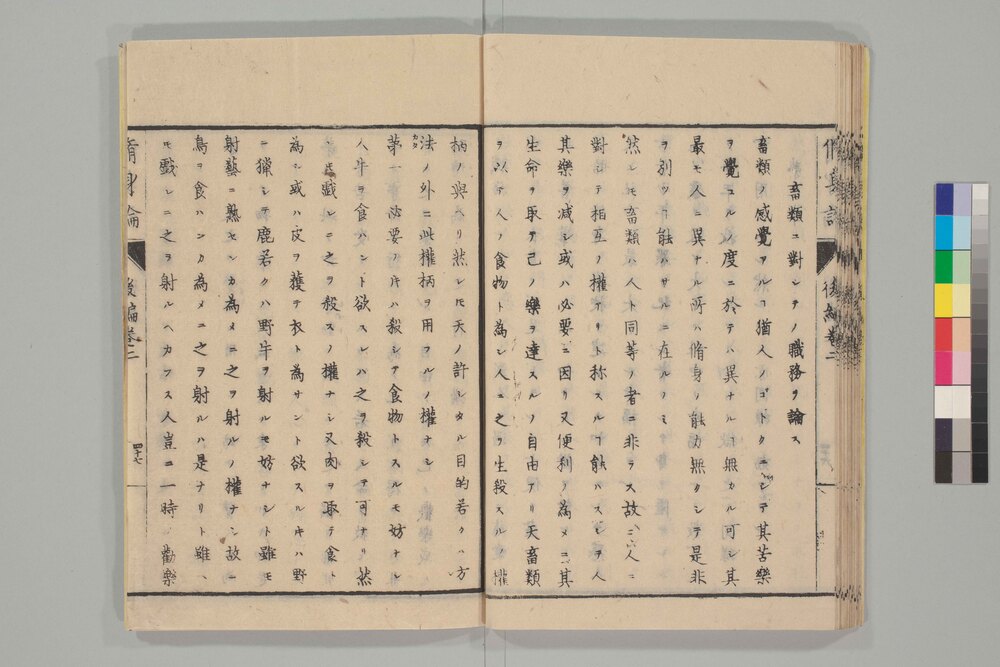 畜類ニ對シテノ職務ヲ論ス
畜類ノ感覺アルヿ猶人ノゴトクニシテ其苦樂
ヲ覺ユル以度ニ於テハ異ナルヿ無カル可シ其
最モ人ニ異ナル所ハ脩身ノ能力無クシテ是非
ヲ別ツヿ能ハサルニ在ルノミ
然レモ畜類ハ人ト同等ノ者ニ非ラス故ニ人ニ
對シテ相互ノ權アリト称スルヿ能ハスシテ人
其樂ヲ减シ或ハ必要ニ因リ又便利ノ為メニ其
生命ヲ取テ己ノ樂ヲ達スルノ自由アリ天畜類
ヲ以テ人ノ食物ト為シ人ニ之ヲ生殺スルノ權
柄ノ與ヘリ然レモ天ノ許シタル目的若クハ方
法ノ外ニ此權柄ヲ用フルノ權ナシ
第一 必要ノ片ハ殺シテ食物トスルモ妨ナシ
人牛ヲ食ハント欲スレハ之ヲ殺シテ可ナリ然
レモ戯レニ之ヲ殺スノ權ナシ又肉ヲ取テ食ト
為シ或ハ皮ヲ獲テ衣ト為サント欲スル片ハ野
ニ獵シテ鹿若クハ野牛ヲ射ルモ妨ナシト雖モ
射藝ニ熟センカ為メニ之ヲ射ルノ權ナシ故ニ
鳥ヲ食ハンカ為メニ之ヲ射ルハ是ナリト雖ヘ
モ戯レニ之ヲ射ルヘカラス人豈ニ一時ノ勸樂
脩身論
後編卷二
四十七